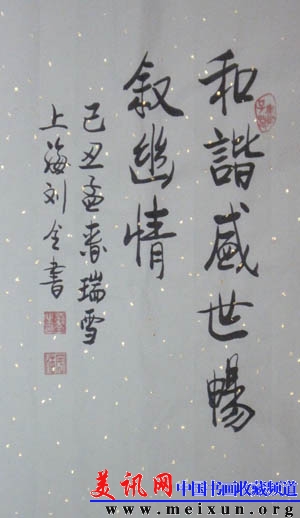 和諧盛世暢
叙幽情
己丑孟春瑞雪
上海刘全書
美讯网 中国书画收藏频道
www.meixun.org